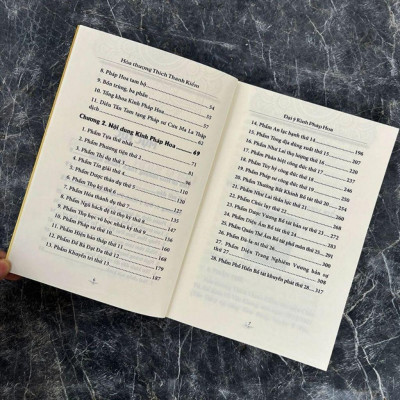 Hòa thượng Thích Thanh Kiểm
8. Pháp Hoa tam bộ
9. Bổn tràng, ba phần 54
10. Tổng khoa Kinh Pháp Hoa
11. Diệu Tần Tam tạng Pháp sư Cưu Ma La Thập
dịch 62
Chương 2. Nội dung Kinh Pháp Hoa 69
1. Phẩm Tựa thứ nhất
2. Phẩm Phương tiện thứ 2
3. Phẩm Thí dụ thứ 3
4. Phẩm Tín giải thứ 4
5. Phẩm Dược thảo dụ thứ 5
6. Phẩm Thụ ký thứ 6
7. Phẩm Hóa thành dụ thứ 7
8. Phẩm Ngũ bách đệ tử thụ ký thứ 8
9. Phẩm Thụ học vô học nhân ký thứ 9
10. Phẩm Pháp sư thứ 10
11. Phẩm Hiện bảo tháp thứ 11 167
12. Phẩm Đề Bà Đạt Đa thứ 12 179
13. Phẩm Khuyến trì thứ 13 187
Đại ý Kinh Pháp Hoa
14. Phẩm An lạc hạnh thứ 14 196
15. Phẩm Tòng địa dũng xuất thứ 15
16. Phẩm Như Lai thọ lượng thứ 16
17. Phẩm Phân biệt công đức thứ 17
18. Phẩm Tùy hỷ công đức thứ 18
19. Phẩm Pháp sư công đức thứ 19
20. Phẩm Thường Bất Khinh Bồ tát thứ 20
21. Phẩm Như Lai thần lực thứ 21
22. Phẩm Chúc lụy thứ 22 268
23. Phẩm Dược Vương Bồ tát bản sự thứ 23
24. Phẩm Diệu Âm Bồ tát thứ 24
25. Phẩm Quán Thế Âm Bồ tát phổ môn thứ 25
26. Phẩm Đà la ni thứ 26
27. Phẩm Diệu Trang Nghiêm Vương bản sự
thứ 27
28. Phẩm Phổ Hiền Bồ tát khuyến phát thứ 28 317